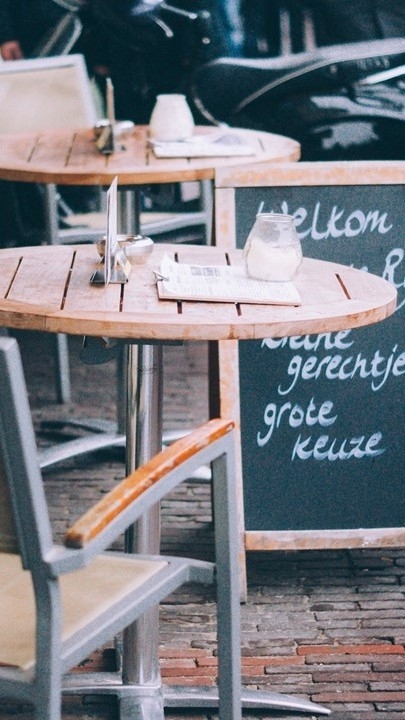 Welkom
kleine
gerechtje
grote
keuze